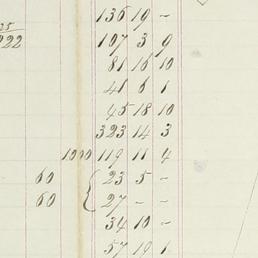 136 19 -
107 3 9
81 16 10
41 6 1
45 18 10
323 14 3
1000 119 11 4
60 { 23 5 -
60 27 - -
34 10 -
57 19 1